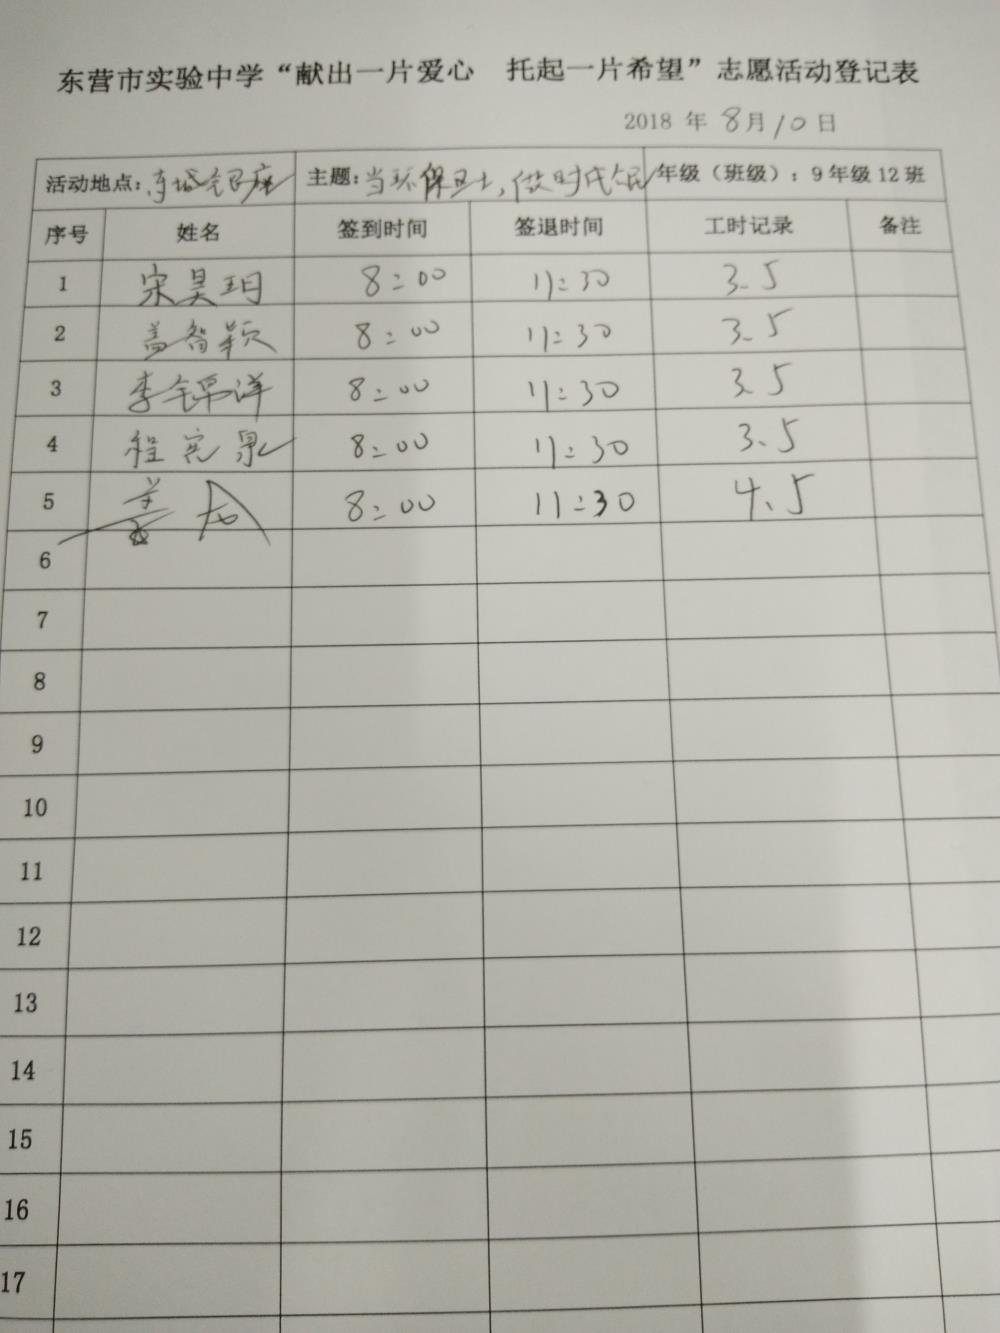 东营市实验中学“献出一片爱心 托起一片希望”志愿活动登记表
2018 年 8月10日
活动地点：东城银座 主题：当环保卫士，做时代先 年级（班级）：9年级12班
序号 姓名 签到时间 签退时间 工时记录 备注
1 宋昊玥 8:00 11:30 3.5
2 盖智颖 8:00 11:30 3.5
3 李锦洋 8:00 11:30 3.5
4 程宪泉 8:00 11:30 3.5
5 8:00 11:30 4.5
6
7
8
9
10
11
12
13
14
15
16
17